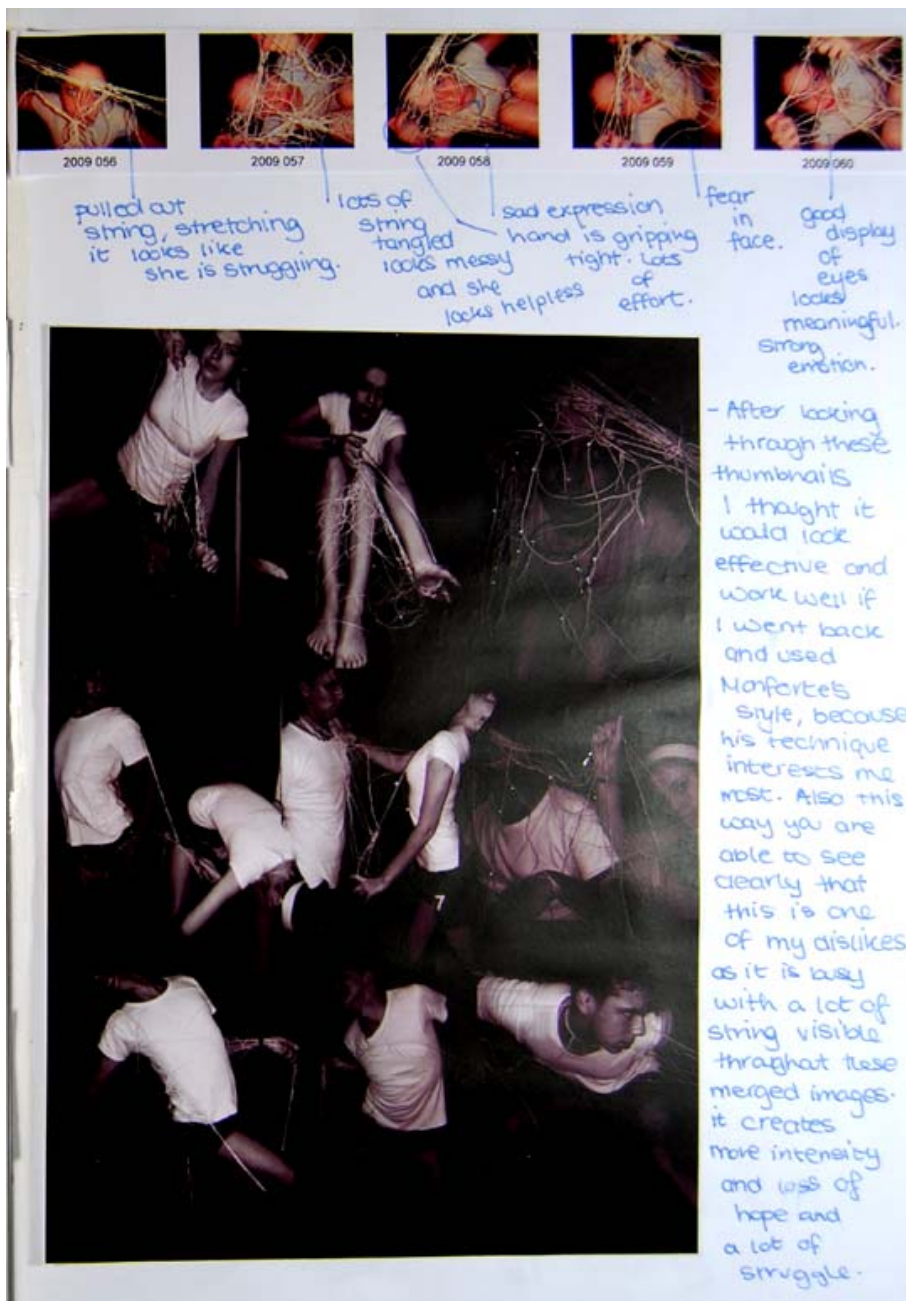 2009 056
2009 057
2009 058
2009 059
2009 060
pulled out
string, stretching
it looks like
she is struggling.
lots of
string
tangled
looks messy
and she
looks helpless
sad expression
hand is gripping
tight. Lots
of
effort.
fear
in
face.
good
display
of
eyes
looks
meaningful.
strong
emotion.
- After looking
through these
thumbnails
I thought it
would look
effective and
work well if
I went back
and used
Monforte's
style, because
his technique
interests me
most. Also this
way you are
able to see
clearly that
this is one
of my dislikes
as it is busy
with a lot of
string visible
throughout these
merged images.
it creates
more intensity
and loss of
hope and
a lot of
struggle.
7